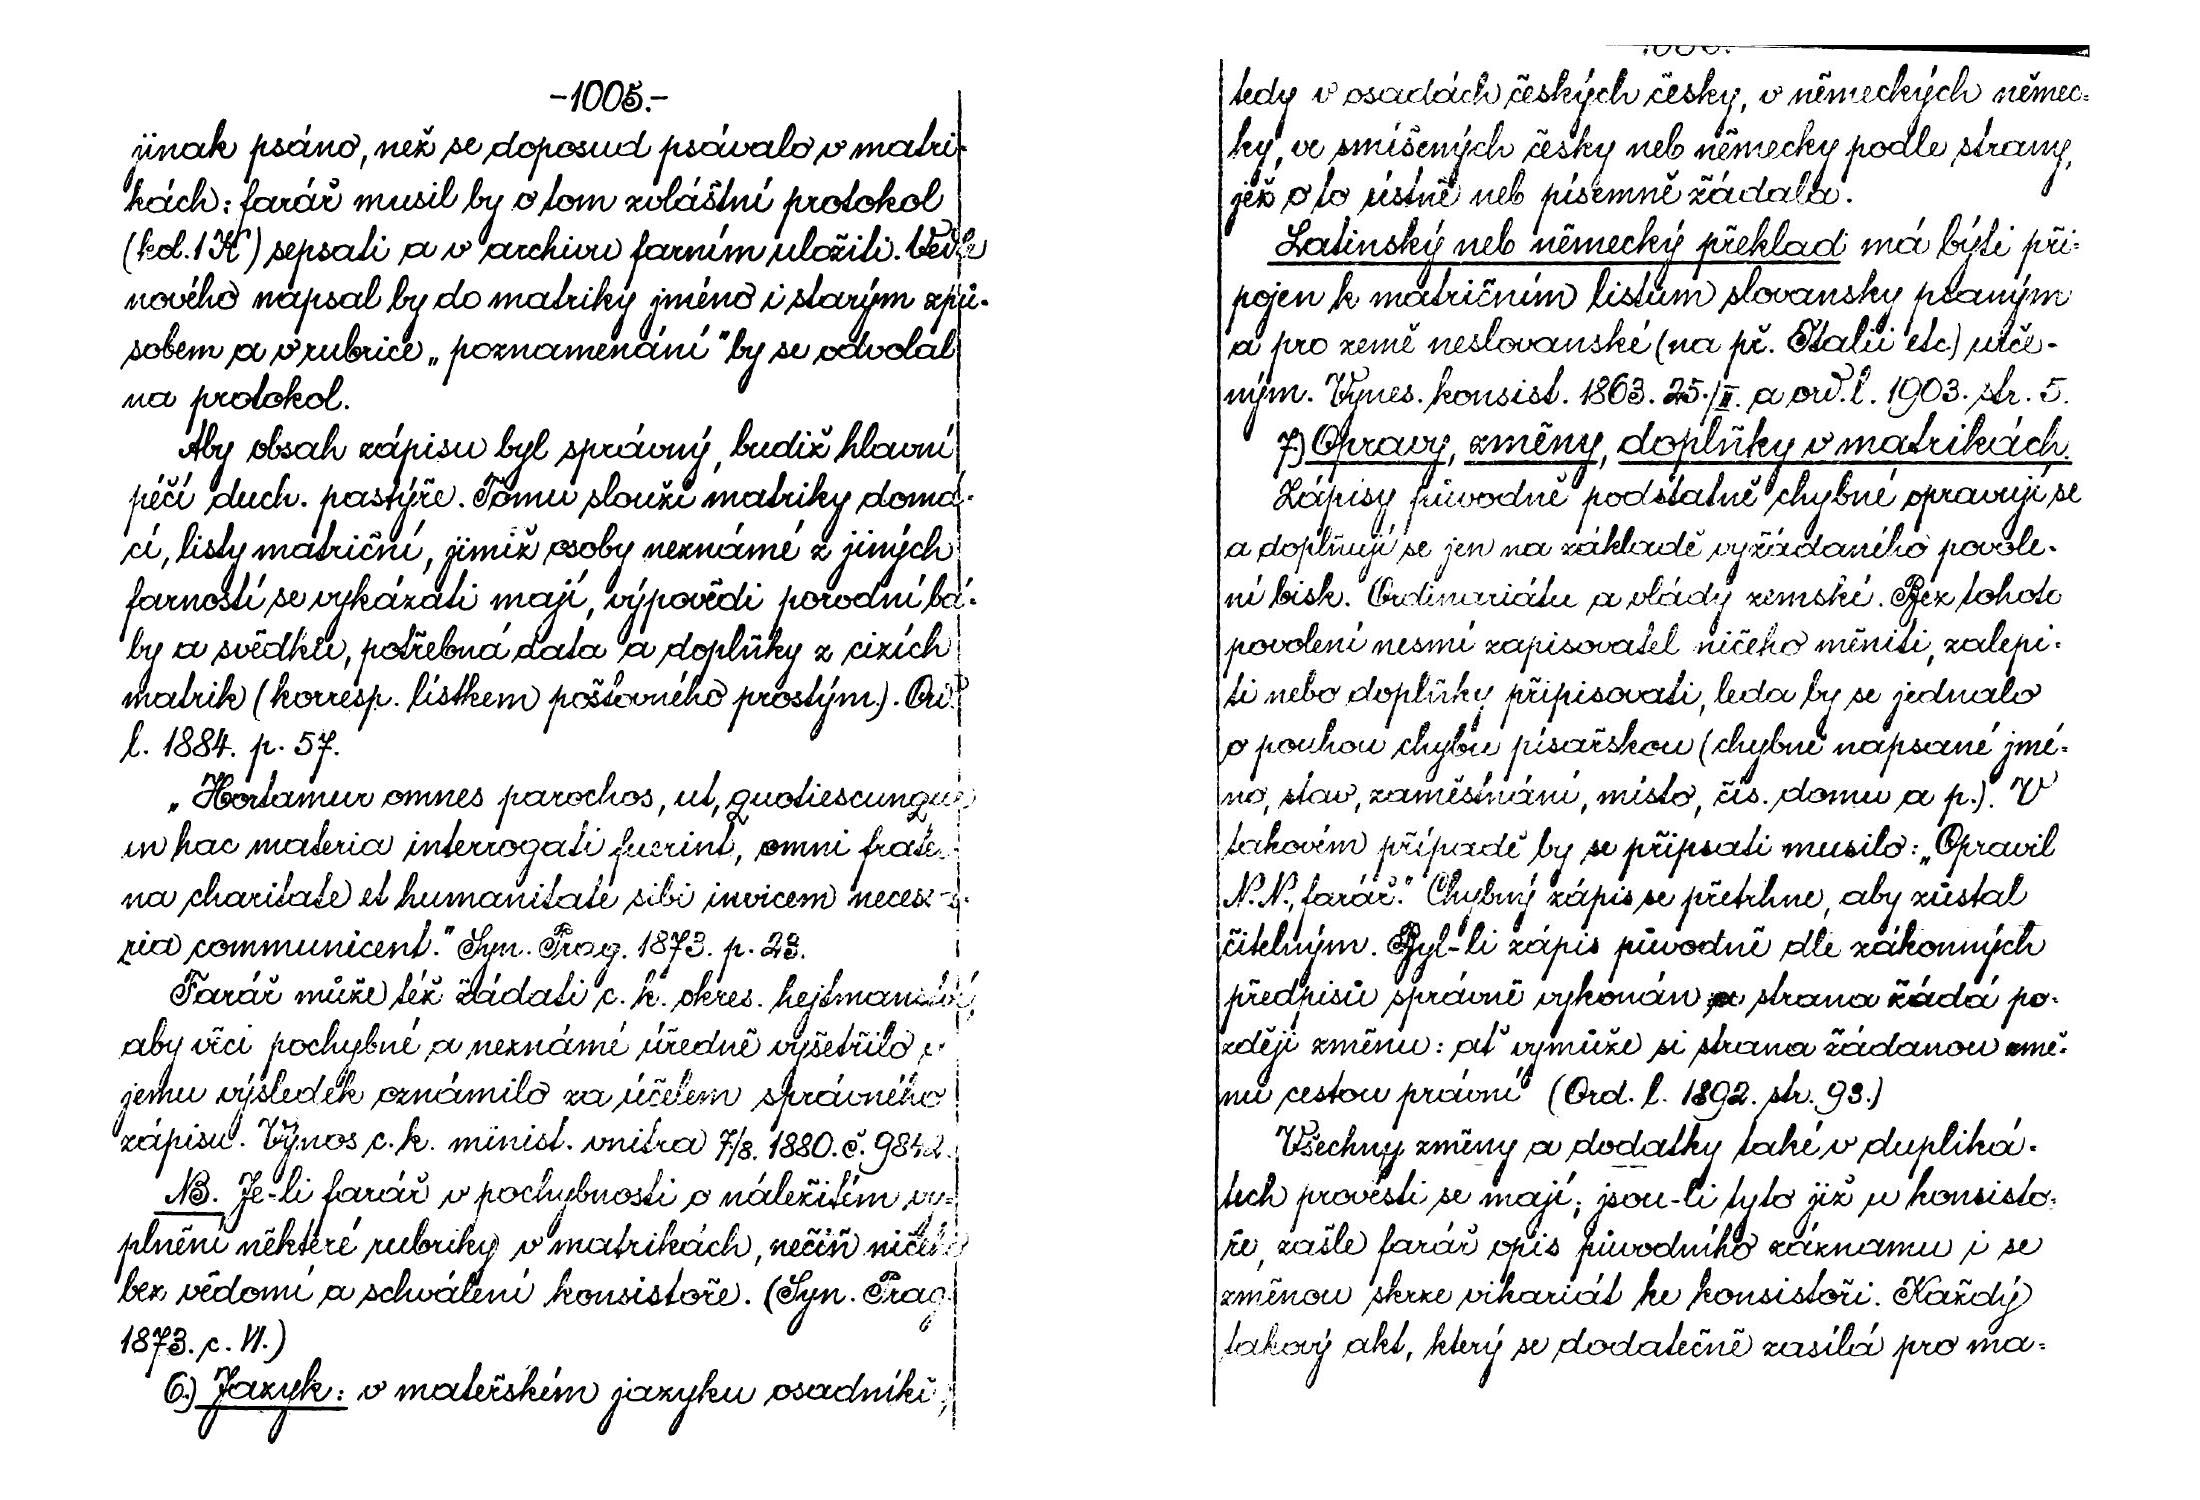 -1005.-
jinak psáno, než se doposud psávalo v matri-
kách: farář musil by o tom zvláštní protokol
(kol. 1 K) sepsati a v archivu farním uložiti. Vedle
nového napsal by do matriky jméno i starým způ-
sobem a v rubrice „poznamenání" by se odvolal
na protokol.
Aby obsah zápisu byl správný, budiž hlavní
péčí duch. pastýře. Tomu slouží matriky domá-
cí, listy matriční, jimiž osoby neznámé z jiných
farností se vykázati mají, výpovědi porodní bá-
by a svědků, potřebná data a doplňky z cizích
matrik (korresp. lístkem poštovného prostým). Ord.
l. 1884. p. 57.
„Hortamur omnes parochos, ut, quotiescunque
in hac materia interrogati fuerint, omni frater-
na charitate et humanitate sibi invicem necessa-
ria communicent." Syn. Prag. 1873. p. 23.
Farář může též žádati c. k. okres. hejtmanství,
aby věci pochybné a neznámé úředně vyšetřilo a
jemu výsledek oznámilo za účelem správného
zápisu. Výnos c. k. minist. vnitra 7/8. 1880. č. 9842.
NB. Je-li farář v pochybnosti o náležitém vy-
plnění některé rubriky v matrikách, nečiň ničeho
bez vědomí a schválení konsistoře. (Syn. Prag.
1873. c. VI.)
6.) Jazyk: v mateřském jazyku osadníků,
tedy v osadách českých česky, v německých němec-
ky, ve smíšených česky neb německy podle strany,
jež o to ústně neb písemně žádala.
Latinský neb německý překlad má býti při-
pojen k matričním listům slovansky psaným
a pro země neslovanské (na př. Italii etc) urče-
ným. Vynes. konsist. 1863. 25./II. a ord. l. 1903. str. 5.
7.) Opravy, změny, doplňky v matrikách.
Zápisy původně podstatně chybné opravují se
a doplňují se jen na základě vyžádaného povole-
ní bisk. Ordinariátu a vlády zemské. Bez tohoto
povolení nesmí zapisovatel ničeho měniti, zalepi-
ti nebo doplňky připisovati, leda by se jednalo
o pouhou chybu písařskou (chybně napsané jmé-
no, stav, zaměstnání, místo, čís. domu a p.). V
takovém případě by se připsati musilo: „Opravil
N. N., farář." Chybný zápis se přetrhne, aby zůstal
čitelným. Byl-li zápis původně dle zákonných
předpisů správně vykonán a strana žádá po-
zději změnu: ať vymůže si strana žádanou změ-
nu cestou právní (Ord. l. 1892. str. 93.)
Všechny změny a dodatky také v dupliká-
tech provésti se mají; jsou-li tyto již u konsisto-
ře, zašle farář opis původního záznamu i se
změnou skrze vikariát ke konsistoři. Každý
takový akt, který se dodatečně zasílá pro ma-